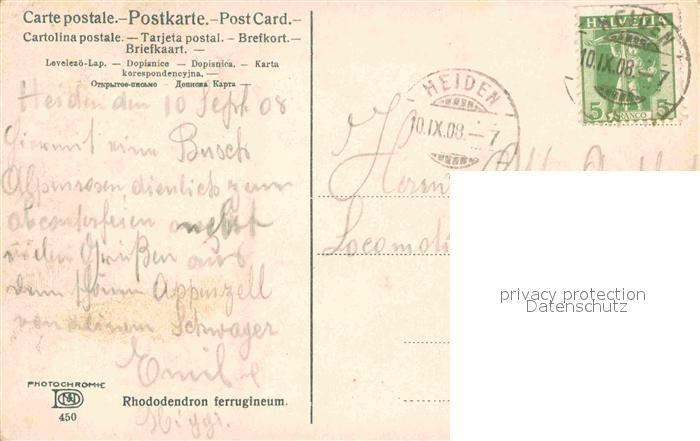 Carte postale.–Postkarte.–Post Card.–
Cartolina postale. — Tarjeta postal. – Brefkort. –
Briefkaart. —
Levelező-Lap. — Dopisnice — Dopisnica. — Karta
korespondencyjna. —
Открытое-письмо — Дописна Карта —
Heiden den 10 Sept 08
Hiermit eine Busch
Alpenrosen dienlich zum
abconterfeien nebst
vielen Grüßen aus
dem schönen Appenzell
von deinem Schwager
Emil
PHOTOCHROMIE
450
Rhododendron ferrugineum.
HELVETIA
5 5
FRANCO
HEIDEN
10.IX.08.–7
HEIDEN
10.IX.08.–7
Herrn
Locomoti
privacy protection
Datenschutz